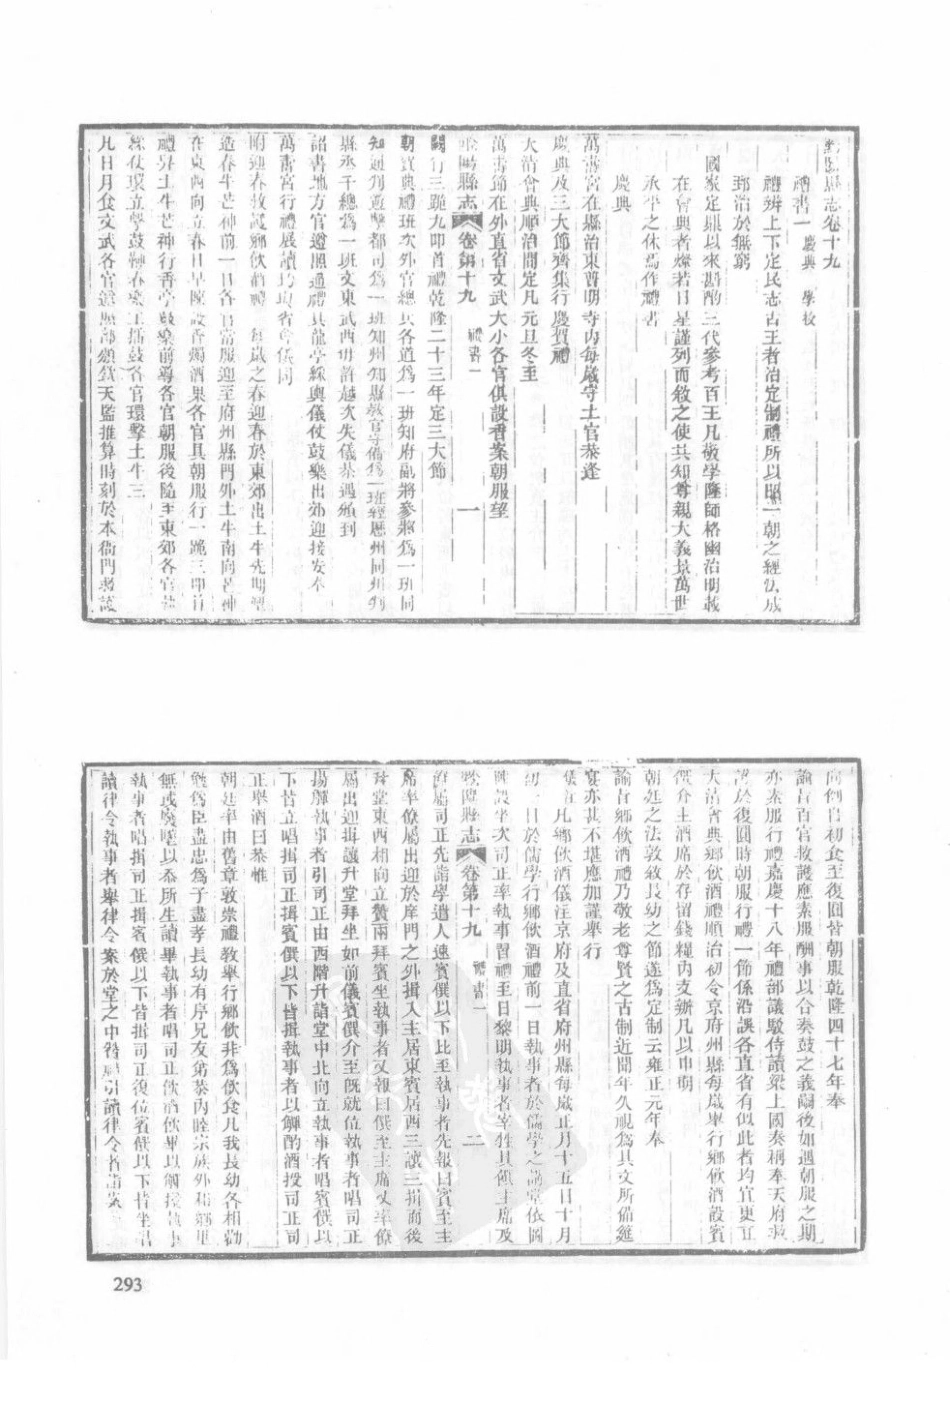 縣志卷十九
禮書一 慶典 學校
禮辨上下定民志古王者治定制禮所以昭一朝之經仏成
郅治於無窮
國家定鼎以來斟酌三代參考百王凡敬學隆師格幽治明載
在會典者燦若日星謹列而敘之使共知尊親大義景萬世
承平之休焉作禮書
慶典
萬壽宮在縣治東普明寺內每歲守土官恭逢
慶典及三大節齊集行慶賀禮
大清會典順治間定凡元旦冬至
萬壽節在外直省文武大小各官俱設香案朝服望
縣志 卷第十九 禮書一 一
闕行三跪九叩首禮乾隆二十三年定三大節
朝賀典禮班次外官總兵各道為一班知府副將參將為一班同
知通判遊擊都司為一班知州知縣教官守備為一班經歷州同州判
縣丞千總為一班文東武西毋許越次失儀恭遇頒到
詔書地方官遵照通禮具龍亭綵輿儀仗鼓樂出郊迎接安奉
萬壽宮行禮展讀與省會儀同
附迎春救護鄉飲酒禮 每歲之春迎春於東郊出土牛先期
造春牛芒神前一日各官常服迎至府州縣門外土牛南向芒神
在東西向立春日早陳設香燭酒果各官具朝服行一跪三叩首
禮舁土牛芒神行香亭鼓樂前導各官朝服後隨至東郊各官執
綵仗環立擊鼓 擂鼓各官環擊土牛三
凡日月食文武各官遵照部頒欽天監推算時刻於本衙門設
向 日初食至復圓皆朝服乾隆四十七年奉
諭旨百官救護應素服酬事以合奏鼓之義嗣後如遇朝服之期
亦素服行禮嘉慶十八年禮部議駁侍讀梁上國奏稱奉天府救
護於復圓時朝服行禮一節係沿誤各直省有似此者均宜更正
大清會典鄉飲酒禮順治初令京府州縣每歲舉行鄉飲酒設賓
僎介主酒席於存留錢糧內支辦凡以申明
朝廷之法敦敘長幼之節遂為定制云雍正元年奉
諭旨鄉飲酒禮乃敬老尊賢之古制近聞年久視為具文所備筵
宴亦甚不堪應加謹舉行
儀注 凡鄉飲酒儀注京府及直省府州縣每歲正月十五日十月
初一日於儒學行鄉飲酒禮前一日執事者於儒學之講堂依圖
陳設坐次司正率執事習禮至日黎明執事者宰牲具饌主席及
縣志 卷第十九 禮書一 二
僚屬司正先詣學遣人速賓僎以下比至執事者先報曰賓至主
席率僚屬出迎於庠門之外揖入主居東賓居西三讓三揖而後
升堂東西相向立贊兩拜賓坐執事者又報曰僎至主席又率僚
屬出迎揖讓升堂拜坐如前儀賓僎介至既就位執事者唱司正
揚觶執事者引司正由西階升詣堂中北向立執事者唱賓僎以
下皆立唱揖司正揖賓僎以下皆揖執事者以觶酌酒授司正司
正舉酒曰恭惟
朝廷率由舊章敦崇禮教舉行鄉飲非為飲食凡我長幼各相勸
勉為臣盡忠為子盡孝長幼有序兄友弟恭內睦宗族外和鄉里
無或廢墜以忝所生讀畢執事者唱司正飲酒飲畢以觶授執事
執事者唱揖司正揖賓僎以下皆揖司正復位賓僎以下皆坐唱
讀律令執事者舉律令案於堂之中 引讀律令者詣案
293